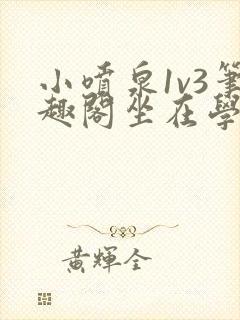 小噴泉1v3筆
趣閣坐在學
黃輝全